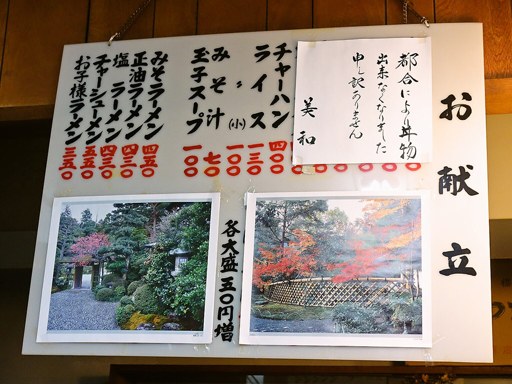 お献立
都合により丼物
出来なくなりました
申し訳ありません
美和
チャーハン 四〇〇
ライス 一三〇
〃 (小) 一〇〇
みそ汁 七〇
玉子スープ 一〇〇
みそラーメン 四五〇
正油ラーメン 四三〇
塩ラーメン 四三〇
チャーシューメン 五五〇
お子様ラーメン 三五〇
各大盛 五〇円増